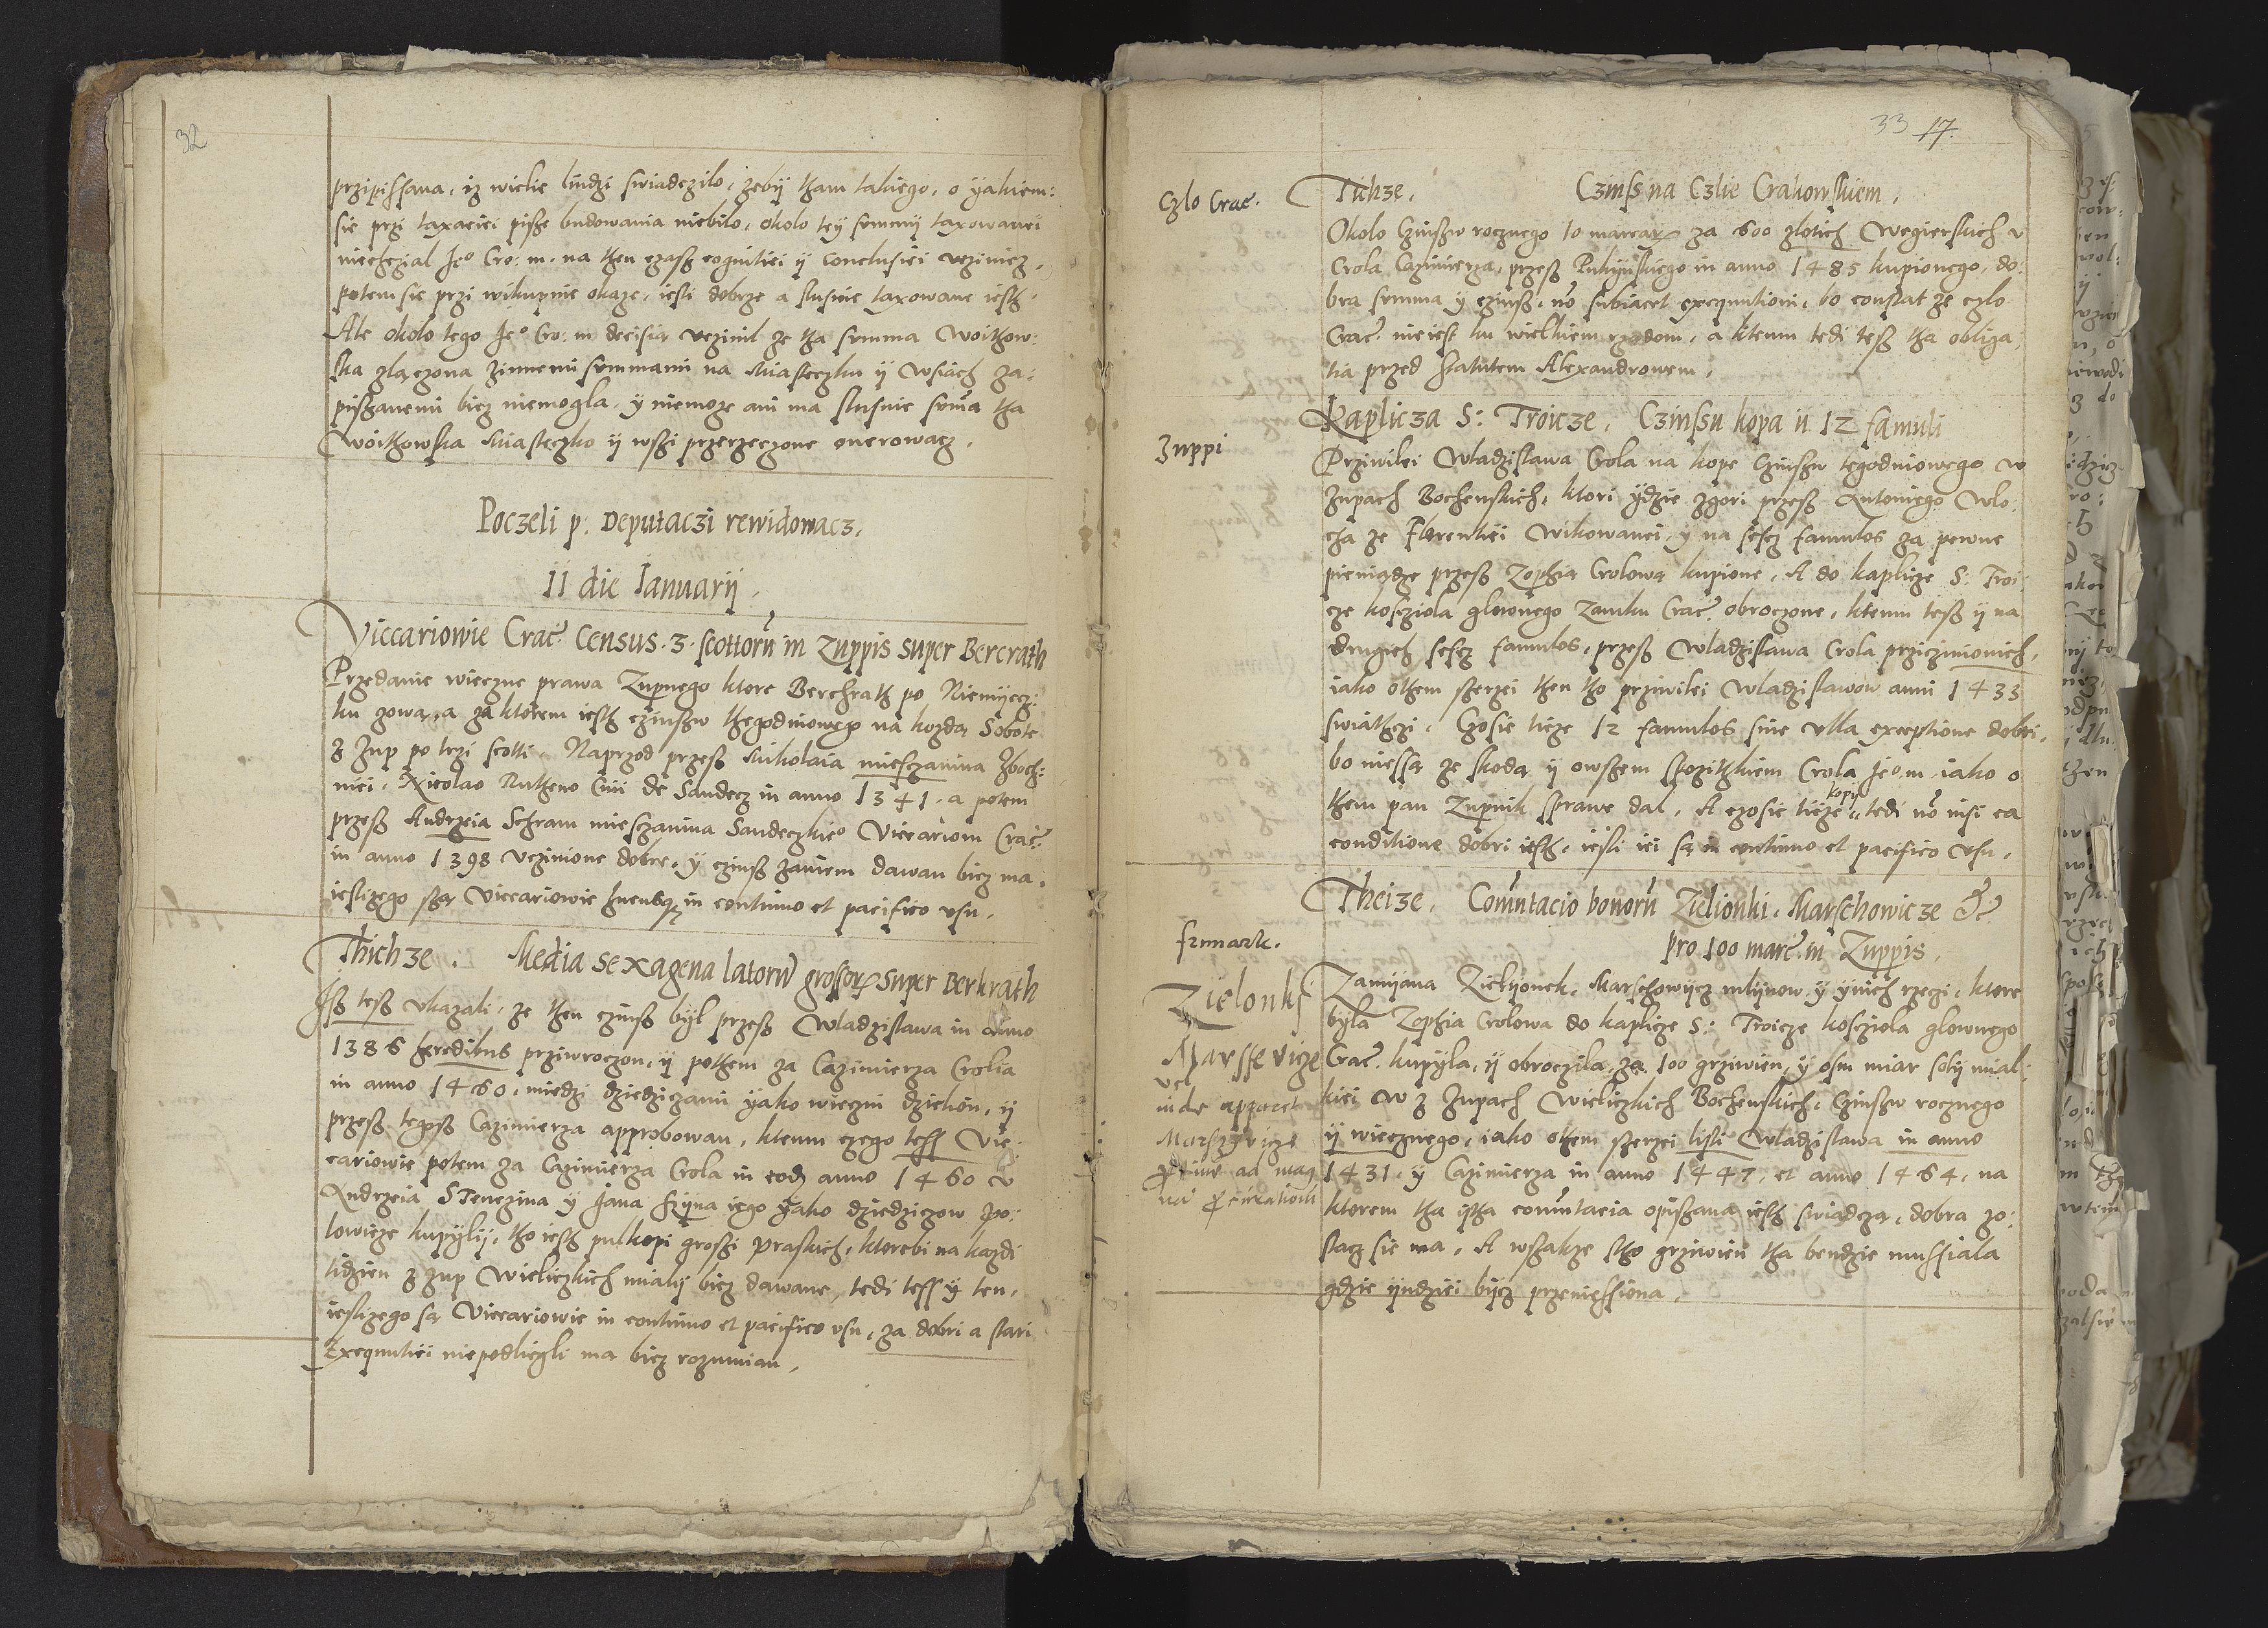 32
przipissana, iz wielie liudzi swiadczilo, zebij tham takiego, o ijakiem:
sie przi taxaciei pisze budowania niebilo, okolo teij summij taxowanei
niechczial Jeº Cro: m. na then czasz cognitiei ij conclusiei vcziniez,
potem sie przi wikupnie okaze, iesli dobrze a slusnie taxowane iesth.
Ale okolo tego Jeº Cro: m decisią vczinil ze tha summa Woithow:
ska zlączona zinnemi summami na Miasteczku ij wsiach za:
pisanemi bicz niemogla, y niemoze ani ma slusnie suma tha
Woithowska Miasteczko ij wszi przerzeczone onerowacz.
Poczeli p: Deputaczi rewidowacz.
11 die Ianuarij.
Viccariowie Crac. Census. 3. scottorū in Zuppis super Bercrath
Przedanie wieczne prawa Zupnego ktore Berchrath po Niemijeczi:
ku zową, a za ktorem iesth czinszw thegodniowego na kozdą Sobote
z zup po trzi scotti. Naprzod przesz Mikolaia miesczanina Zboch:
niei. Nicolao Rutheno Ciui de Sandecz in anno 1341. a potem
przesz Andrzeia Schram miesczanina Sandeczkieº Viccariom Crac.
in anno 1398 vczinione dobre, y czinsz zaniem dawan bicz ma,
iesliczego szą Viccariowie hucusq; in continuo et pacifico vsu.
Thichze. Media sexagena latorū grossorꝝ super Berkrath
Isz tesz vkazali, ze then czinsz bijl przesz Wladzislawa in anno
1386 heredibus prziwroczon, ij pothem za Cazimierza Crolia
in anno 1460, miedzi dziedziczami ijako wieczni dzielion, ij
przesz tegosz Cazimierza approbowan, ktemu czego tess Vic:
cariowie potem za Cazimierza Crola in eodē anno 1460 v
Andrzeia STenczina y Jana Szijna iego ijako dziedziczow po:
lowicze kupijlij, tho iesth pulkopi groszi praskich, ktorebi na kazdi
tidzien z zup Wieliczkich mialij bicz dawane, tedi tess ij ten,
iesliczego są Viccariowie in continuo et pacifico vsu, za dobri a stari
Exequutiei niepodliegli ma bicz rozumian.
33 17.
Czlo Crac.
Tichze. Czinss na Czlie Crakowskiem.
Okolo Czinszw rocznego 10 marcarꝝ za 600 zlotich Wegierskich v
Crola Cazimierza, przesz Pukijnskiego in anno 1485 kupionego, do:
bra summa y czinsz, nō subiacet exequutioni, bo constat ze czlo
Crac. nieiest ku wielkiem rządom, a ktemu tedi tesz tha obliga:
tia przed statutem Alexandrowem.
Zuppi
Kaplicza S: Troicze. Czinssu kopa ii 12 famuli
Prziwilei Wladzislawa Crola na kope Czinszw tegodniowego w
Zupach Bochenskich, ktori ijdzie zgori przesz Antoniego Wlo:
cha ze Florentiei Wikowanei, y na sescz famulos za pewne
pieniądze przesz Zophią Crolową kupione, A do kaplicze S: Troi:
cze kosciola glownego Zamku Crac. obroczone, ktemu tesz ij na
drugich sescz famulos, przesz Wladzislawa Crola przicziniomich,
iako othem szerzei then tho prziwilei Wladzislawow anni 1433
swiathczi. Czosie ticze 12 famulos sine vlla exceptione dobri,
bo niessą ze skodą ij owszem spozithkiem Crola Jeº m. iako o
them pan Zupnik sprawe dal. A czosie ticze kopij tedi nō nisi ea
conditione dobri iesth, iesli iei są in continuo et pacifico vsu.
frmark.
Zielonki
Marssevicze
inde apparet
Marszvicze
Theize. Comutacio bonorū Zielionki, Marschowicze &c
pro 100 marc. in Zuppis.
Zamijana Zielijonek, Marschowijcz mlijnow y ijnich rzeczi, ktore
byla Zophia Crolowa do kaplicze S: Troicze kosciola glownego
Crac. kupijla, ij obroczila, za 100 grziwien, y osm miar soly mial:
kiei W z Zupach Wieliczkich Bochenskich, Czinszw rocznego
ij wiecznego, iako othem szerzei listi Wladzislawa in anno
1431. y Cazimierza in anno 1447, et anno 1464. na
ktorem tha ista comutacia opiszana iesth swiadczą, dobra zo:
stacz sie ma, A wszakze stho grziwien tha bendzie mussiala
gdzie ijndziei bijcz przeniessiona.